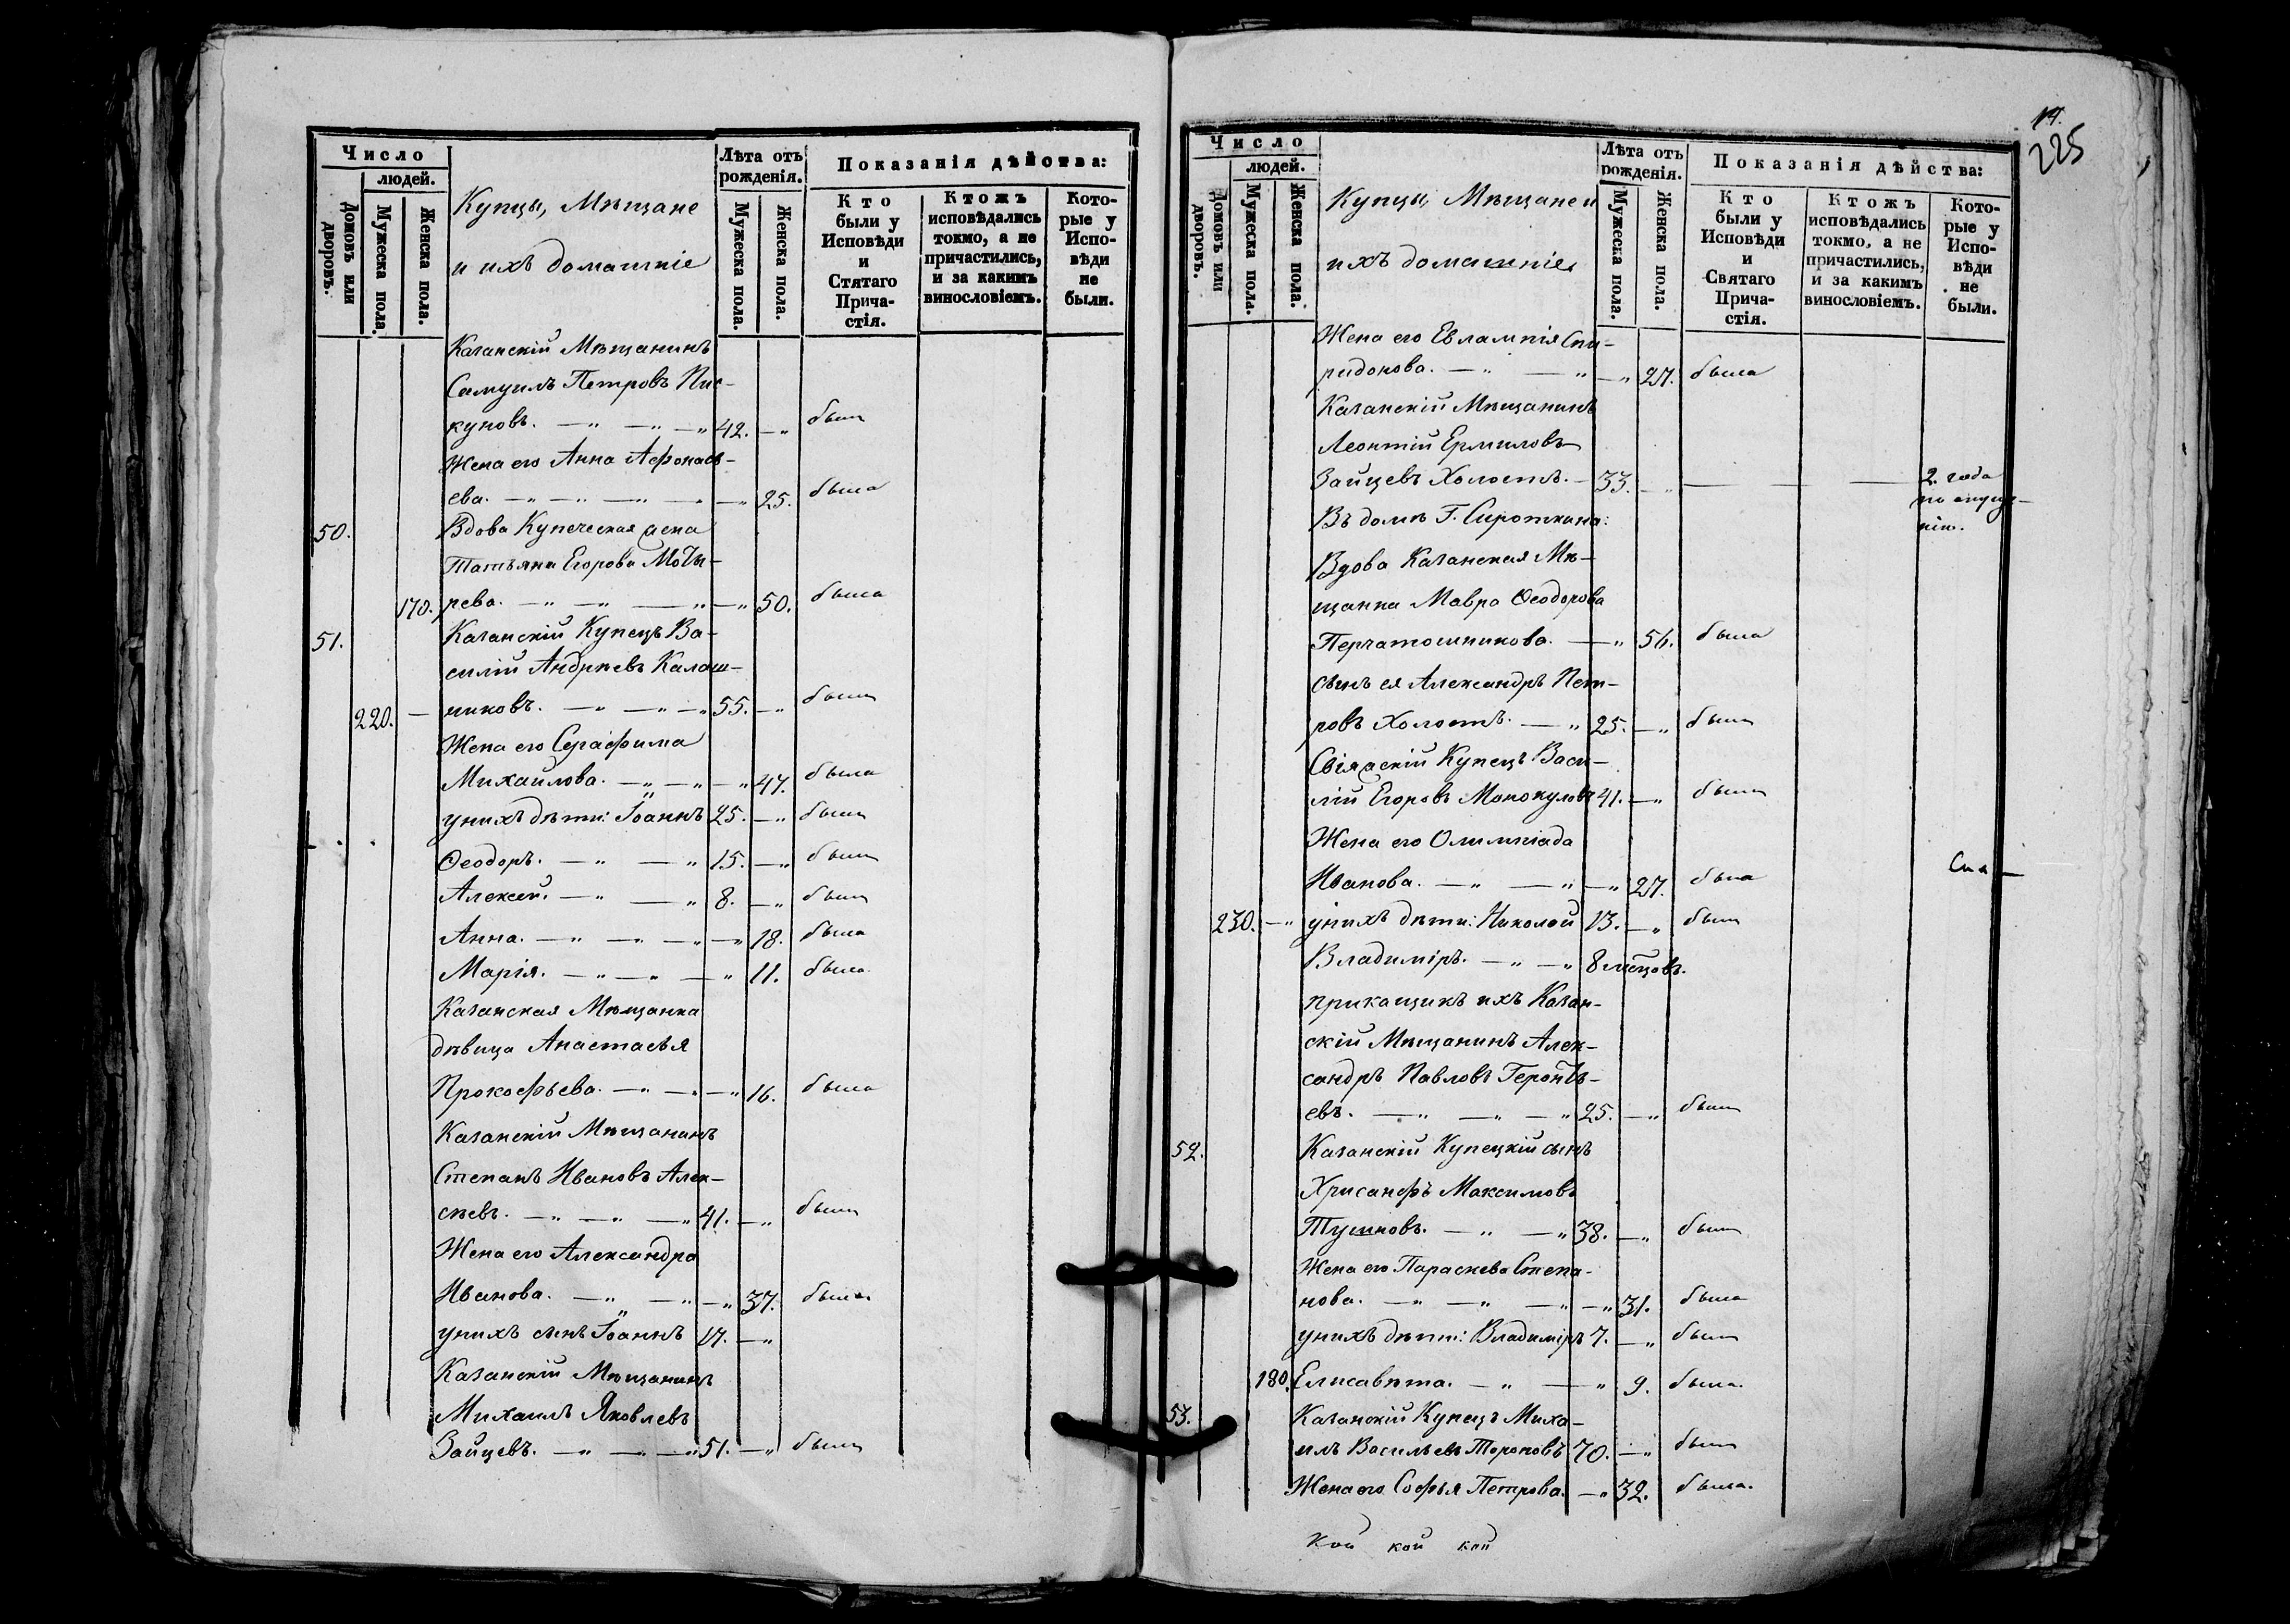 Число
людей.
Домовъ или дворовъ.
Мужеска пола.
Женска пола.
Купцы, Мѣщане
и ихъ домашніе
Лѣта отъ рожденія.
Мужеска пола.
Женска пола.
Показанія дѣйства:
Кто были у Исповѣди и Стятаго Прича-стія.
Ктожъ исповѣдались токмо, а не причастились, и за какимъ винословіемъ.
Кото-рые у Испо-вѣди не были.
Казанскій Мѣщанинъ
Самуилъ Петровъ Пис-
куновъ. — " — " — " 42. — " былъ
Жена его Анна Афонась-
ева. — " — " — " — — " 25. была
50. Вдова Купеческая жена
Татьяна Егорова
170. рева. — " — " — " — " 50. была
51. Казанскій Купецъ Ва-
силій Андреевъ Калаш-
220. — никовъ. — " — " — " 55. — " былъ
Жена его Серафима
Михайлова. — " — " — " 47. была
у нихъ дѣти: Іоаннъ 25. — " былъ
Ѳеодоръ. — " — " 15. — " былъ
Алексей. — " — " 8. — " былъ
Анна. — " — " — " — " 18. была
Марія. — " — " — " 11. была
Казанская Мѣщанка
дѣвица Анастасья
Прокофьева. — " — " — " 16. была
Казанскій Мѣщанинъ
Степанъ Ивановъ Алек-
сѣевъ. — " — " — " 41. — " былъ
Жена его Александра
Иванова. — " — " — " 37. была
у нихъ сынъ Іоаннъ 17. — "
Казанскій Мѣщанинъ
Михаилъ Яковлевъ
Зайцевъ. — " — " — " 51. — " былъ
225
Число
людей.
Домовъ или дворовъ.
Мужеска пола.
Женска пола.
Купцы, Мѣщане и
ихъ домашніе
Лѣта отъ рожденія.
Мужеска пола.
Женска пола.
Показанія дѣйства:
Кто были у Исповѣди и Святаго Прича-стія.
Ктожъ исповѣдались токмо, а не причастились, и за какимъ винословіемъ.
Кото-рые у Испо-вѣди не были.
Жена его Евлампія Спи-
ридонова. — " — " — " 27. была
Казанскій Мѣщанинъ
Леонтій Ермиловъ
Зайцевъ Холостъ. — 33. — " — — — 2. года
по опуще-
нію.
Въ домѣ Г. Сироткина:
Вдова Казанская Мѣ-
щанка Мавра Ѳеодорова
Перчатошникова. — " 56. была
сынъ ея Александръ Пет-
ровъ Холостъ. — " 25. — " былъ
Свіяжскій Купецъ Васи-
лій Егоровъ Монокуловъ 41. — " былъ
Жена его Олимпіада
Иванова. — " — " — " 27. была
230. — " у нихъ дѣти: Николай 13. — " былъ
Владиміръ. — " — " 8 мѣсцовъ.
прикащикъ ихъ Казан-
скій Мѣщанинъ Алек-
сандръ Павловъ Геронтъ-
евъ. — " — " — " 25. — " былъ
52. Казанскій Купецкій сынъ
Хрисанфъ Максимовъ
Тушновъ. — " — " 38. — " былъ
Жена его Параскева Степа-
нова. — " — " — " — " 31. была
у нихъ дѣти: Владиміръ 7. — " былъ
180. Елисавета. — " — " 9. была.
53. Казанскій Купецъ Миха-
илъ Васильевъ Тороповъ 70. — " былъ
Жена его Софья Петрова. — " 32. была.
кой кой кой